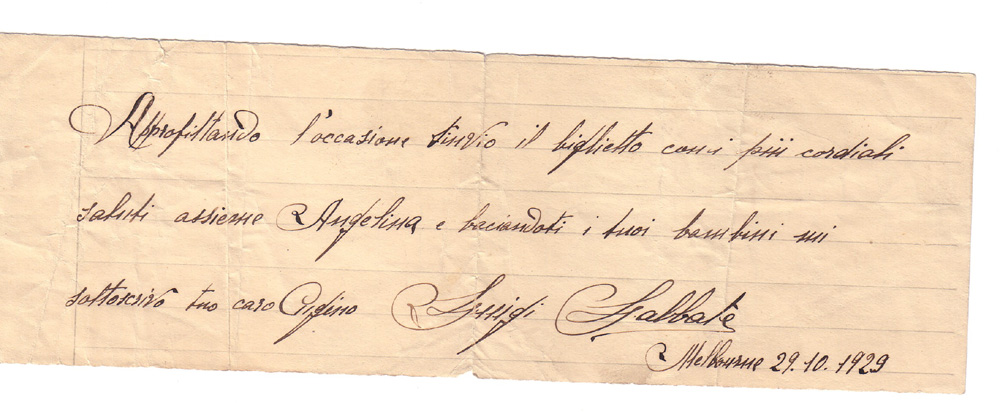 Approfittando l'occasione t'invio il biglietto con i più cordiali
saluti assieme Angelina e baciandoti i tuoi bambini mi
sottoscrivo tuo caro Luigi
Melbourne 29.10.1929